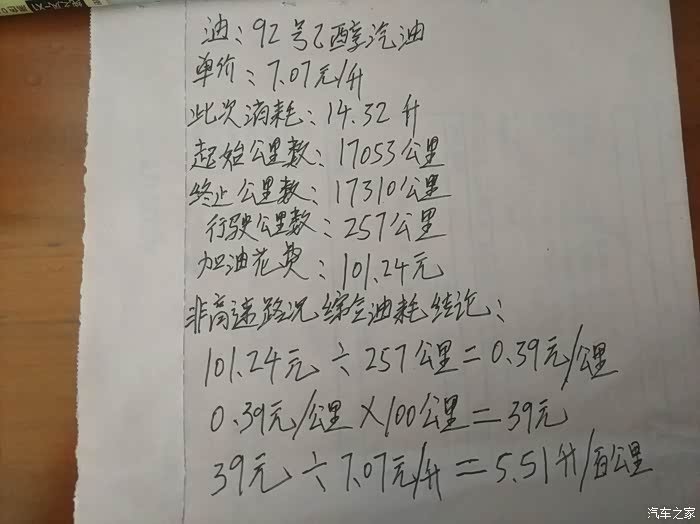 油：92号乙醇汽油
单价：7.07元/升
此次消耗：14.32升
起始公里数：17053公里
终止公里数：17310公里
行驶公里数：257公里
加油花费：101.24元
非高速路况综合油耗结论：
101.24元÷257公里=0.39元/公里
0.39元/公里×100公里=39元
39元÷7.07元/升=5.51升/百公里
汽车之家